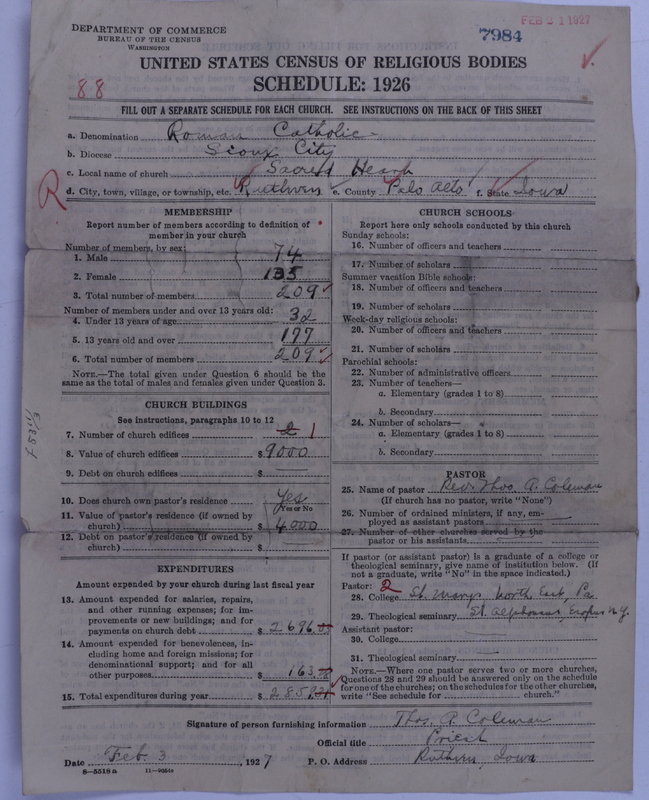 DEPARTMENT OF COMMERCE
BUREAU OF THE CENSUS
WASHINGTON
FEB 1927
7984
UNITED STATES CENSUS OF RELIGIOUS BODIES
88
SCHEDULE: 1926
FILL OUT A SEPARATE SCHEDULE FOR EACH CHURCH. SEE INSTRUCTIONS ON THE BACK OF THIS SHEET
a. Denomination Roman Catholic
b. Diocese Sioux City
c. Local name of church Sacred Heart
R
d. City, town, village, or township, etc. Ruthven e. County Palo Alto f. State Iowa
MEMBERSHIP
Report number of members according to definition of member in your church
Number of members, by sex:
1. Male 74
2. Female 135
3. Total number of members 209
Number of members under and over 13 years old:
4. Under 13 years of age 32
5. 13 years old and over 177
6. Total number of members 209
NOTE.—The total given under Question 6 should be
same as the total of males and females given under Question 3.
CHURCH BUILDINGS
See instructions, paragraphs 10 to 12
7. Number of church edifices 2 1
8. Value of church edifices $9000
9. Debt on church edifices $
10. Does church own pastor's residence Yes
Yes or No
11. Value of pastor's residence (if owned by
church) $4000
12. Debt on pastor's residence (if owned by
church) $
EXPENDITURES
Amount expended by your church during last fiscal year
13. Amount expended for salaries, repairs,
and other running expenses; for im-
provements or new buildings; and for
payments on church debt $2696
14. Amount expended for benevolences, in-
cluding home and foreign missions; for
denominational support; and for all
other purposes $163
15. Total expenditures during year $
CHURCH SCHOOLS
Report here only schools conducted by this church
Sunday schools:
16. Number of officers and teachers
17. Number of scholars
Summer vacation Bible schools:
18. Number of officers and teachers
19. Number of scholars
Week-day religious schools:
20. Number of officers and teachers
21. Number of scholars
Parochial schools:
22. Number of administrative officers
23. Number of teachers—
a. Elementary (grades 1 to 8)
b. Secondary
24. Number of scholars—
a. Elementary (grades 1 to 8)
b. Secondary
PASTOR
25. Name of pastor Rev. Thos. A. Coleman
(If church has no pastor, write "None")
26. Number of ordained ministers, if any, em-
ployed as assistant pastors
27. Number of other churches served by the
pastor or his assistants
If pastor (or assistant pastor) is a graduate of a college or
theological seminary, give name of institution below. (If
not a graduate, write "No" in the space indicated.)
Pastor: 2
28. College St. Marys North East, Pa
29. Theological seminary St. Alphonsus, Esopus N.Y.
Assistant pastor:
30. College
31. Theological seminary
NOTE.—Where one pastor serves two or more churches,
Questions 28 and 29 should be answered only on the schedule
for one of the churches; on the schedules for the other churches,
write "See schedule for church."
Signature of person furnishing information Thos. A. Coleman
Official title Priest
Date Feb. 3, 1927 P. O. Address Ruthven, Iowa
8—5518a